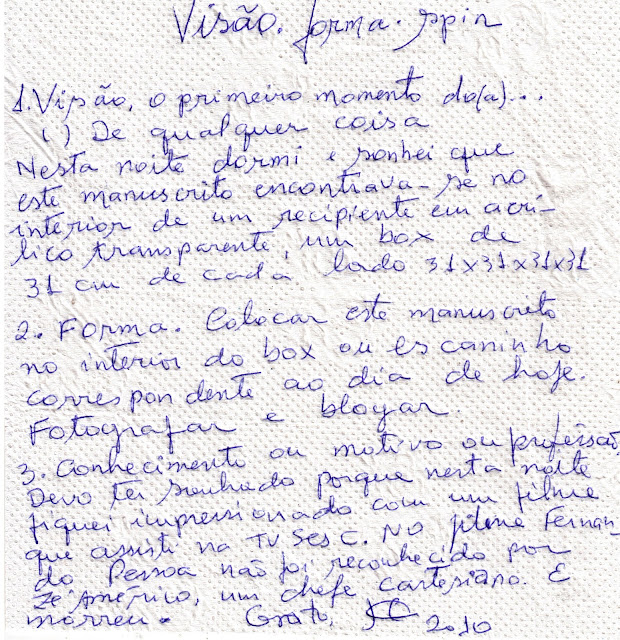 Visão. forma. spin
1. Visão, o primeiro momento do(a)...
1) De qualquer coisa
Nesta noite dormi e sonhei que
este manuscrito encontrava-se no
interior de um recipiente em acrí-
lico transparente, um box de
31 cm de cada lado 31x31x31x31
2. Forma. Colocar este manuscreto
no interior do box ou escaninho
correspondente ao dia de hoje.
Fotografar e blogar.
3. Conhecimento ou motivo ou profissão,
Devo ter sonhado porque nesta noite
fiquei impressionado com um filme
que assisti na TV Sesc. No filme Fernan-
do Pessoa não foi reconhecido por
Zé Américo, um chefe cartesiano. E
morreu. Grato, 2010